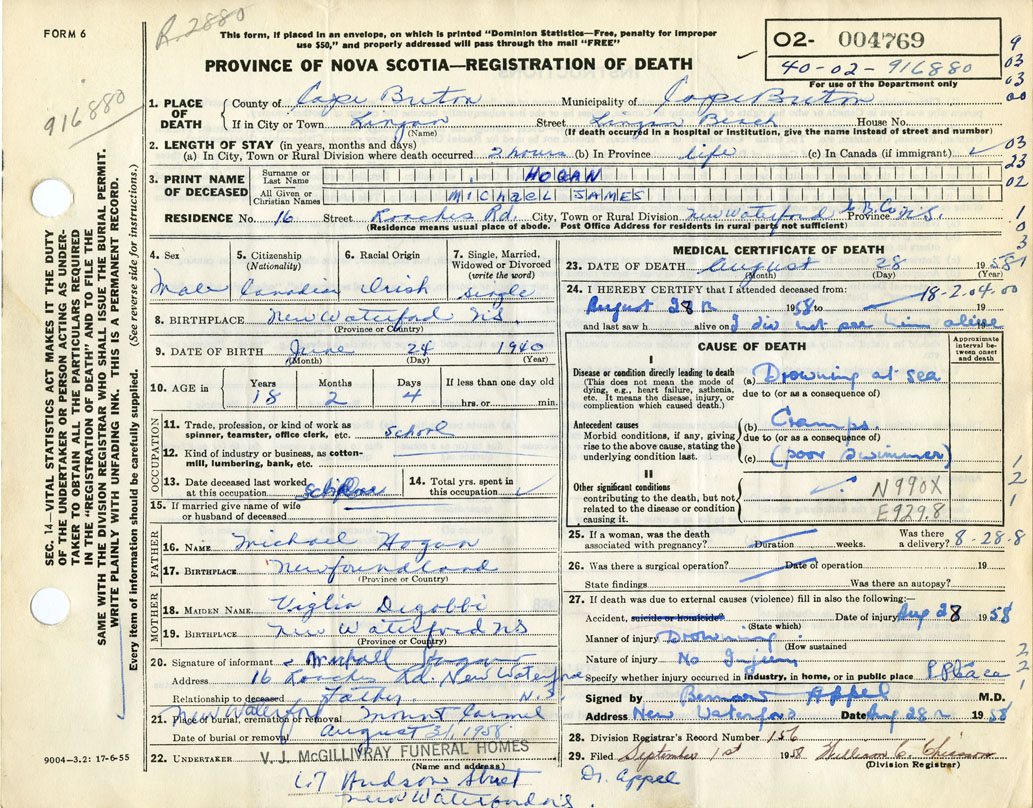 R. 2880
FORM 6
This form, if placed in an envelope, on which is printed "Dominion Statistics—Free, penalty for improper
use $50," and properly addressed will pass through the mail "FREE"
PROVINCE OF NOVA SCOTIA—REGISTRATION OF DEATH
02- 004769
40-02-916880
For use of the Department only
916880
SEC. 14—VITAL STATISTICS ACT MAKES IT THE DUTY
OF THE UNDERTAKER OR PERSON ACTING AS UNDER-
TAKER TO OBTAIN ALL THE PARTICULARS REQUIRED
IN THE "REGISTRATION OF DEATH" AND TO FILE THE
SAME WITH THE DIVISION REGISTRAR WHO SHALL ISSUE THE BURIAL PERMIT.
WRITE PLAINLY WITH UNFADING INK. THIS IS A PERMANENT RECORD.
Every item of information should be carefully supplied. (See reverse side for instructions.)
1. PLACE OF DEATH
County of Cape Breton Municipality of Cape Breton
If in City or Town Lingan Street Lingan Beach House No.
(Name) (If death occurred in a hospital or institution, give the name instead of street and number)
2. LENGTH OF STAY (in years, months and days)
(a) In City, Town or Rural Division where death occurred 2 hours (b) In Province life (c) In Canada (if immigrant)
3. PRINT NAME OF DECEASED
Surname or Last Name HOGAN
All Given or Christian Names MICHAEL JAMES
RESIDENCE No. 16 Street Roaches Rd. City, Town or Rural Division New Waterford C.B.Co Province N.S.
(Residence means usual place of abode. Post Office Address for residents in rural parts not sufficient)
4. Sex 5. Citizenship (Nationality) 6. Racial Origin 7. Single, Married, Widowed or Divorced (write the word)
Male Canadian Irish single
8. BIRTHPLACE New Waterford N.S.
(Province or Country)
9. DATE OF BIRTH June 24 1940
(Month) (Day) (Year)
10. AGE in Years Months Days If less than one day old
18 2 4 hrs. or min.
OCCUPATION
11. Trade, profession, or kind of work as spinner, teamster, office clerk, etc. school
12. Kind of industry or business, as cotton-mill, lumbering, bank, etc.
13. Date deceased last worked at this occupation 14. Total yrs. spent in this occupation
15. If married give name of wife or husband of deceased
FATHER
16. NAME Michael Hogan
17. BIRTHPLACE Newfoundland
(Province or Country)
MOTHER
18. MAIDEN NAME Viglia Degobbi
19. BIRTHPLACE New Waterford NS
(Province or Country)
20. Signature of informant Michael Hogan
Address 16 Roaches Rd. New Waterford
Relationship to deceased Father N.S.
New Waterford
21. Place of burial, cremation or removal Mount Carmel
Date of burial or removal August 31, 1958
22. UNDERTAKER V. J. McGILLIVRAY FUNERAL HOMES
(Name and address)
107 Hudson Street
New Waterford N.S.
9004-3.2: 17-6-55
MEDICAL CERTIFICATE OF DEATH
23. DATE OF DEATH August 28 1958
(Month) (Day) (Year)
24. I HEREBY CERTIFY that I attended deceased from: 18-2.04.00
August 28th 1958 to 19
and last saw h alive on I did not see him alive
CAUSE OF DEATH
Approximate interval between onset and death
I
Disease or condition directly leading to death
(This does not mean the mode of dying, e.g., heart failure, asthenia, etc. It means the disease, injury, or complication which caused death.)
(a) Drowning at sea
due to (or as a consequence of)
Antecedent causes
Morbid conditions, if any, giving rise to the above cause, stating the underlying condition last.
(b) Cramps.
due to (or as a consequence of)
(c) (poor swimmer)
II
Other significant conditions
contributing to the death, but not related to the disease or condition causing it.
N990X
E929.8
25. If a woman, was the death associated with pregnancy? Duration weeks. Was there a delivery? 8-28.8
26. Was there a surgical operation? Date of operation 19
State findings Was there an autopsy?
27. If death was due to external causes (violence) fill in also the following:—
Accident, suicide or homicide? Date of injury Aug 28 1958
(State which)
Manner of injury Drowning
(How sustained
Nature of injury No Injury
Specify whether injury occurred in industry, in home, or in public place P Place
Signed by Bernard Appel M.D.
Address New Waterford Date Aug 28th 1958
28. Division Registrar's Record Number 156
29. Filed September 1st 1958
(Division Registrar)
Dr. Appel
9
03
03
00
03
23
02
1
0
3
1
1
2
1
2
2
1